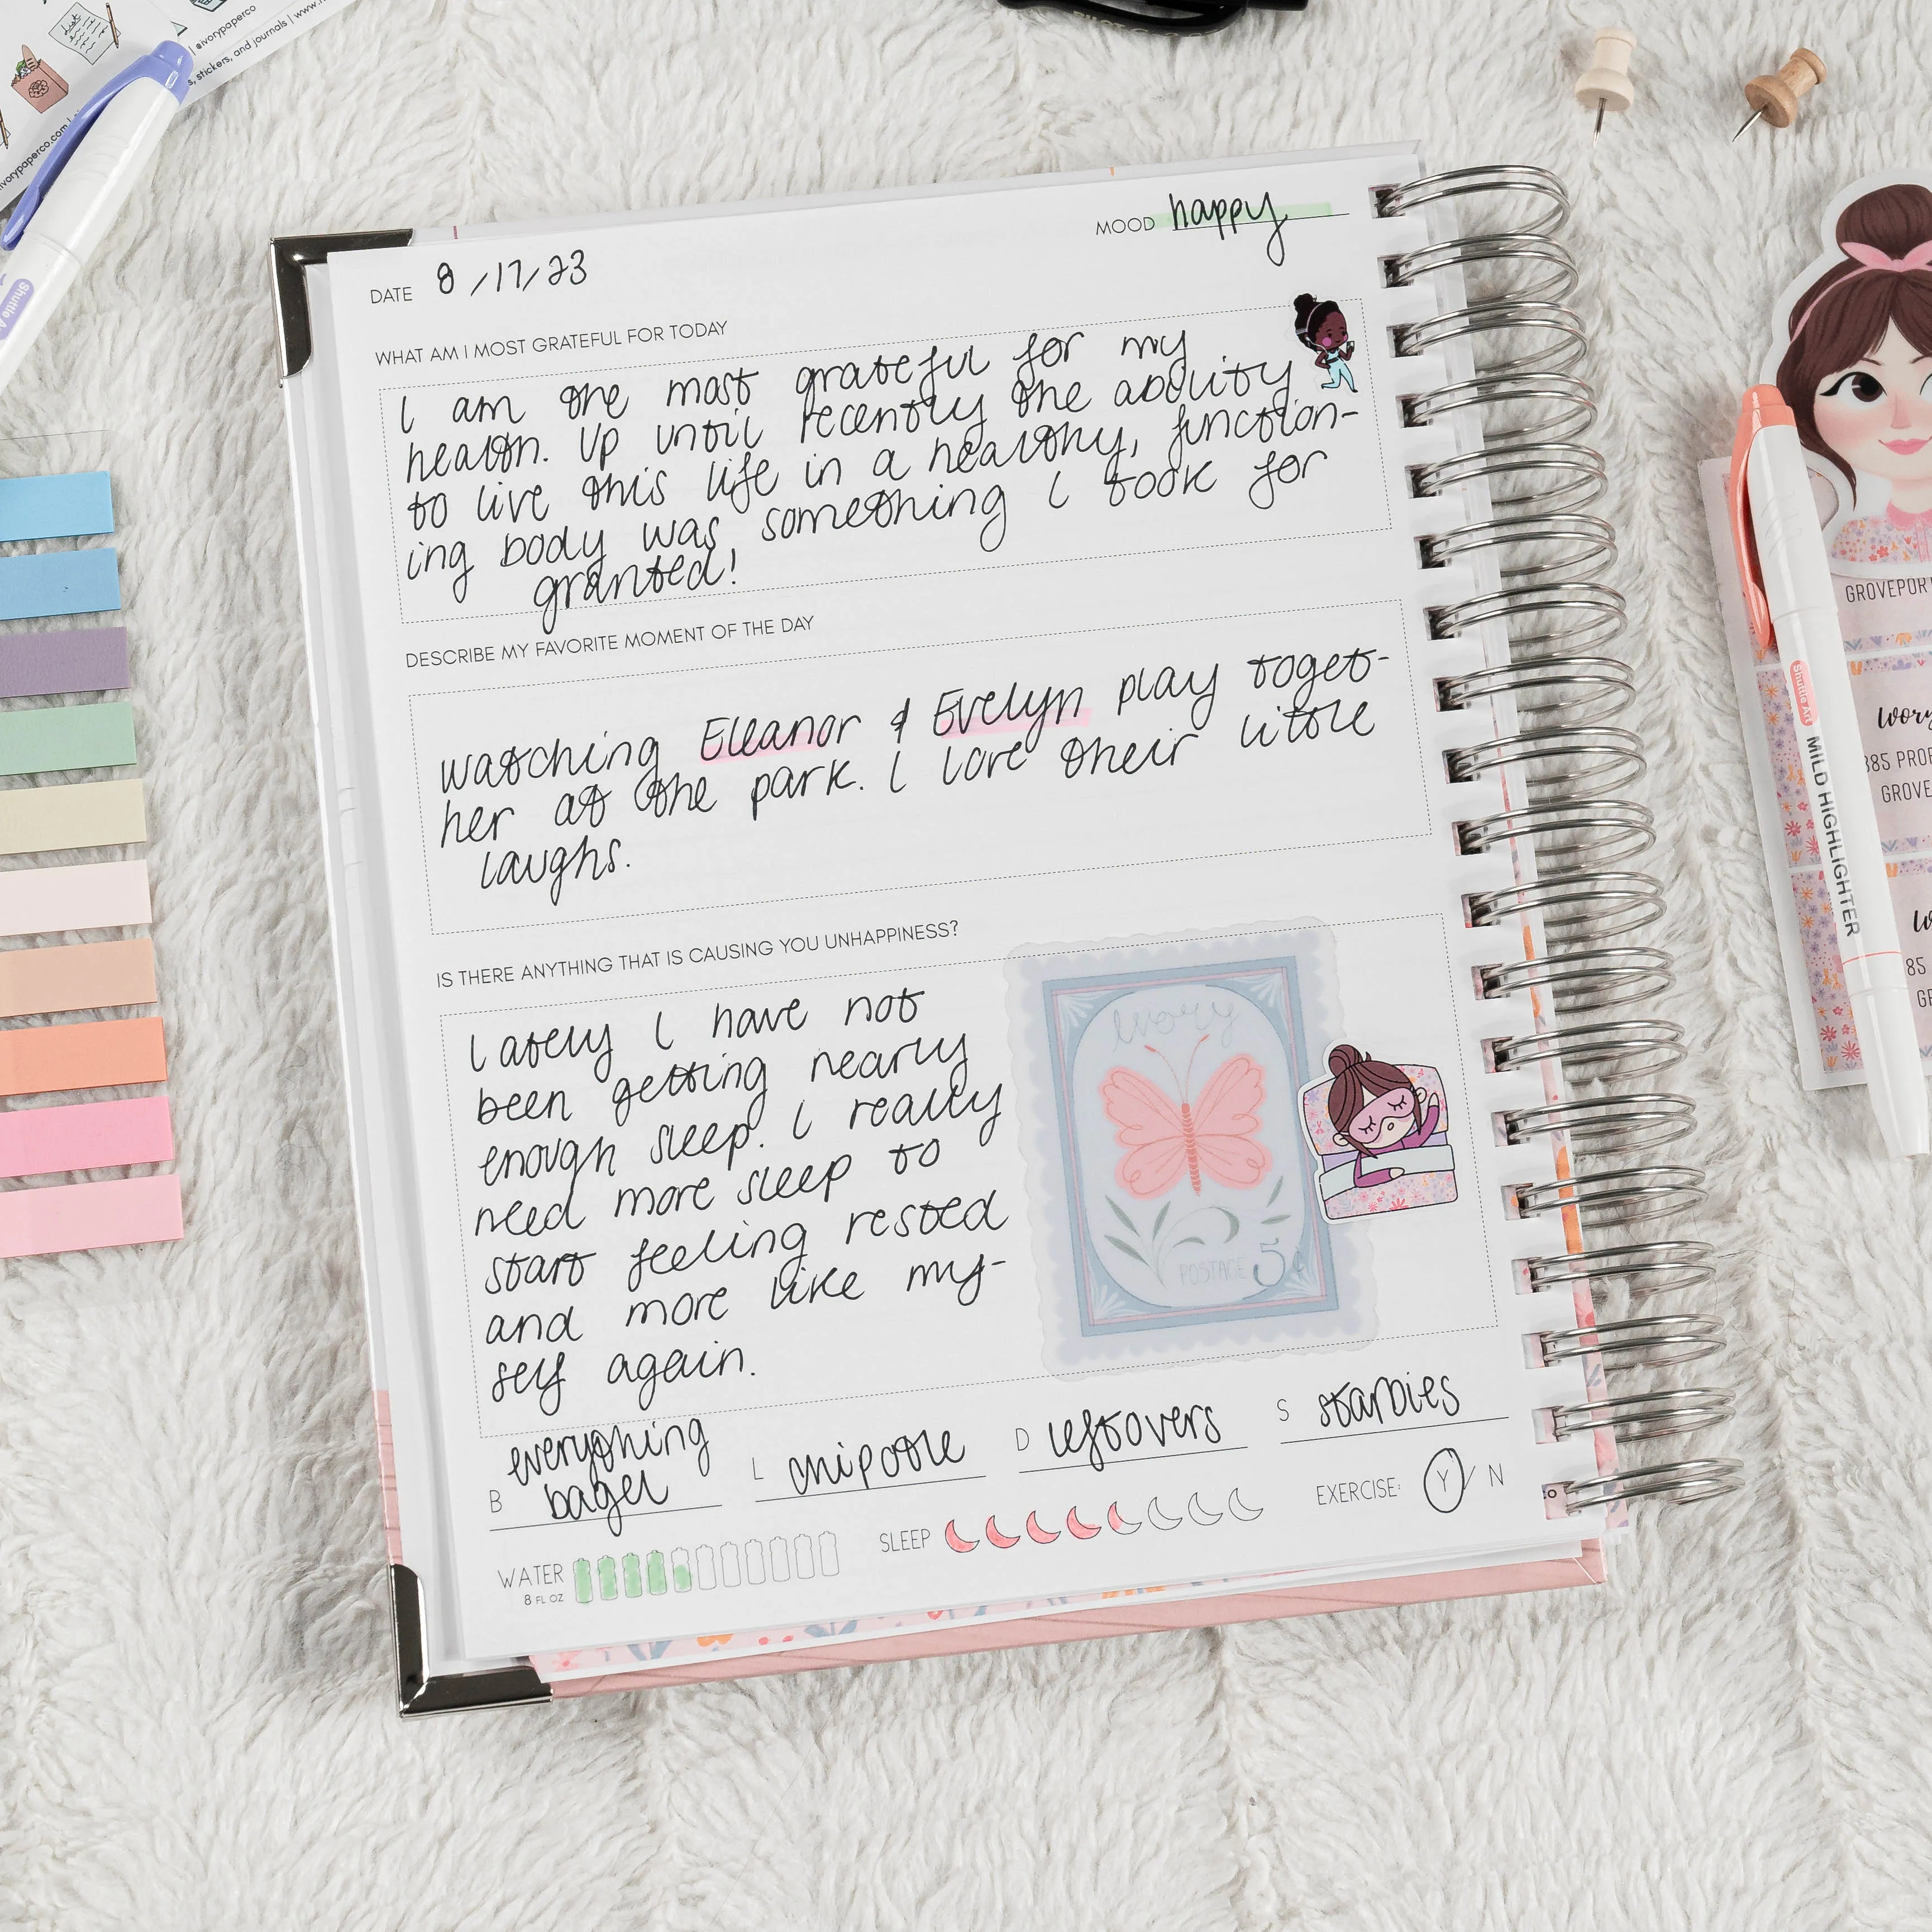 @ivorypaperco
s, stickers, and journals | www.
ivorypaperco.com |
MOOD happy
DATE 8/17/23
WHAT AM I MOST GRATEFUL FOR TODAY
I am the most grateful for my
health. Up until recently the ability
to live this life in a healthy, function-
ing body was something I took for
granted!
DESCRIBE MY FAVORITE MOMENT OF THE DAY
watching Eleanor & Evelyn play toget-
her at the park. I love their little
laughs.
IS THERE ANYTHING THAT IS CAUSING YOU UNHAPPINESS?
Lately I have not
been getting nearly
enough sleep. I really
need more sleep to
start feeling rested
and more like my-
self again.
Ivory
POSTAGE 5¢
B everything
bagel
L chipotle
D leftovers
S starbies
WATER
8 FL OZ
SLEEP
EXERCISE: Y / N
Shuttle Art
MILD HIGHLIGHTER
GROVEPOR
Ivory
385 PROF
GROVE
85